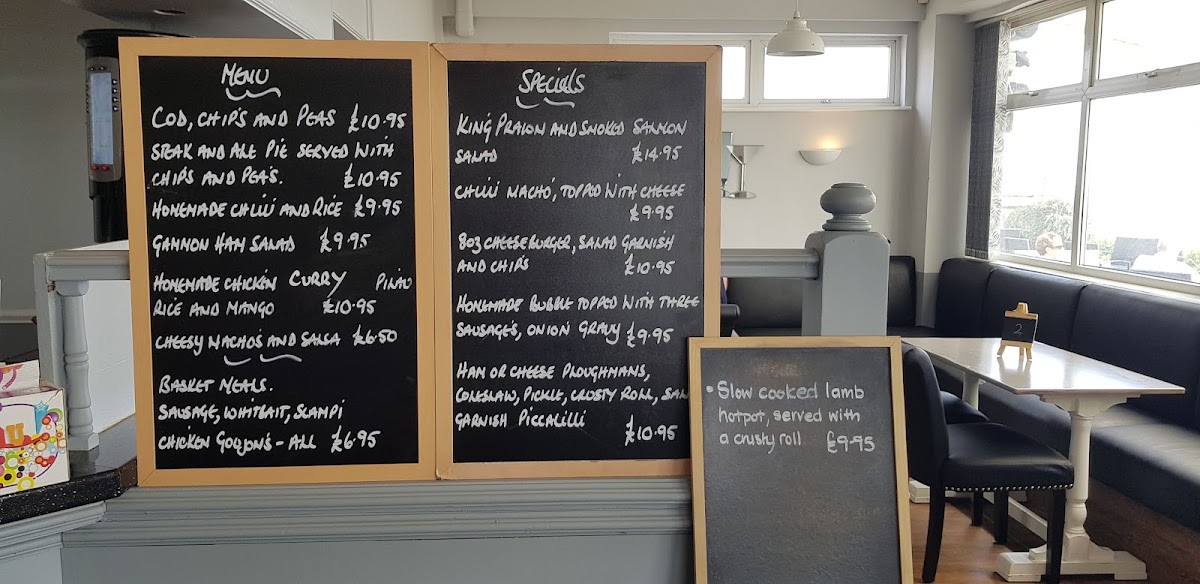 MENU
COD, CHIP'S AND PEAS £10.95
STEAK AND ALE PIE SERVED WITH
CHIPS AND PEA'S. £10.95
HOMEMADE CHILLI AND RICE £9.95
GAMMON HAM SALAD £9.95
HOMEMADE CHICKEN CURRY PILAU
RICE AND MANGO £10.95
CHEESY NACHO'S AND SALSA £6.50
BASKET MEALS.
SAUSAGE, WHITBAIT, SCAMPI
CHICKEN GOUJON'S - ALL £6.95
SPECIALS
KING PRAWN AND SMOKED SALMON
SALAD £14.95
CHILLI NACHO', TOPPED WITH CHEESE
£9.95
8OZ CHEESEBURGER, SALAD GARNISH
AND CHIPS £10.95
HOMEMADE BUBBLE TOPPED WITH THREE
SAUSAGE'S, ONION GRAVY £9.95
HAM OR CHEESE PLOUGHMANS,
COLESLAW, PICKLE, CRUSTY ROLL, SAL
GARNISH PICCALILLI £10.95
• Slow cooked lamb
hotpot, served with
a crusty roll £9.95
2